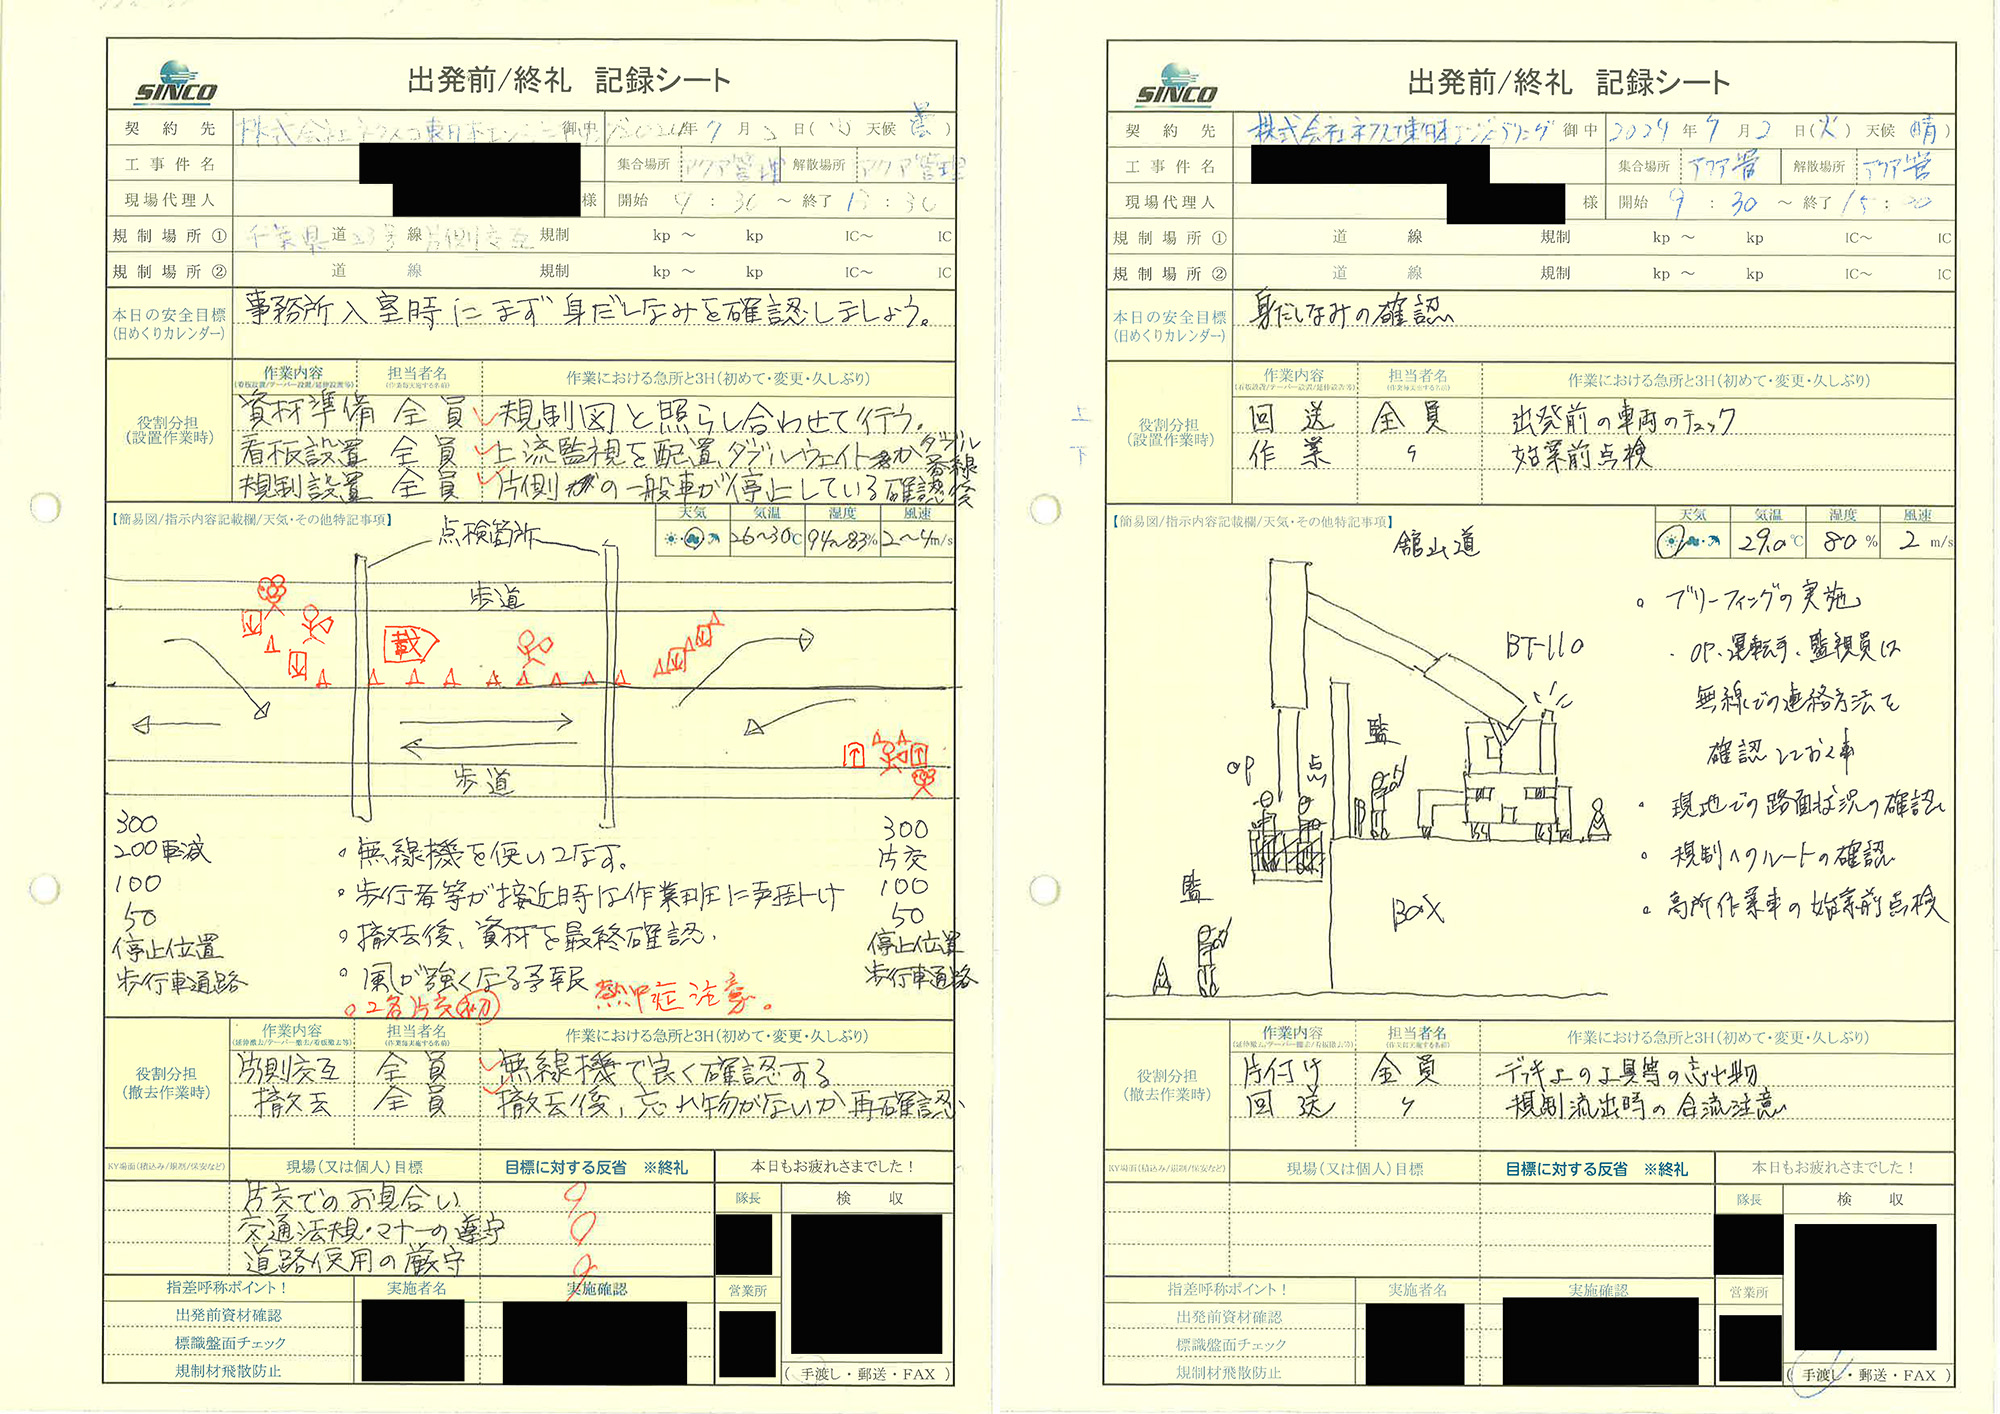 SINCO
出発前/終礼 記録シート
契約先 株式会社ネクスコ東日本エンジニアリング 御中 2024年 7月 2日(火) 天候(曇)
工事件名 集合場所 アクア管理 解散場所 アクア管理
現場代理人 様 開始 9:30 ～ 終了 13:30
規制場所① 千葉県道 23号線 片側交互規制 kp ～ kp IC～ IC
規制場所② 道 線 規制 kp ～ kp IC～ IC
本日の安全目標 事務所入室時にまず身だしなみを確認しましょう。
(日めくりカレンダー)
役割分担
(設置作業時)
作業内容 担当者名 作業における急所と3H(初めて・変更・久しぶり)
(看板設置/テーパー設置/延伸設置等) (作業毎実施する名前)
資材準備 全員 規制図と照らし合わせて行う。
看板設置 全員 上流監視を配置、ダブルウェイト
規制設置 全員 片側の一般車が停止している確認後
【簡易図/指示内容記載欄/天気・その他特記事項】
天気 気温 湿度 風速
26～30℃ 94～83% 2～4m/s
点検箇所
歩道
載
歩道
300
200車減
100
50
停止位置
歩行車通路
。無線機を使いこなす。
。歩行者等が接近時は作業班に声掛け
。撤去後、資材を最終確認。
。風が強くなる予報
熱中症注意。
。2名片交(初)
300
片交
100
50
停止位置
歩行車通路
役割分担
(撤去作業時)
作業内容 担当者名 作業における急所と3H(初めて・変更・久しぶり)
(延伸撤去/テーパー撤去/看板撤去等) (作業毎実施する名前)
片側交互 全員 無線機で良く確認する
撤去 全員 撤去後、忘れ物がないか再確認
KY場面(積込み/規制/保安など) 現場(又は個人)目標 目標に対する反省 ※終礼 本日もお疲れさまでした！
片交でのお見合い
交通法規・マナーの遵守
道路使用の厳守
隊長 検収
指差呼称ポイント！ 実施者名 実施確認 営業所
出発前資材確認
標識盤面チェック
規制材飛散防止
(手渡し・郵送・FAX)
SINCO
出発前/終礼 記録シート
契約先 株式会社ネクスコ東日本エンジニアリング 御中 2024年 7月 2日(火) 天候(晴)
工事件名 集合場所 アクア管 解散場所 アクア管
現場代理人 様 開始 9:30 ～ 終了 15:00
規制場所① 道 線 規制 kp ～ kp IC～ IC
規制場所② 道 線 規制 kp ～ kp IC～ IC
本日の安全目標 身だしなみの確認
(日めくりカレンダー)
上
下
役割分担
(設置作業時)
作業内容 担当者名 作業における急所と3H(初めて・変更・久しぶり)
(看板設置/テーパー設置/延伸設置等) (作業毎実施する名前)
回送 全員 出発前の車両のチェック
作業 〃 始業前点検
【簡易図/指示内容記載欄/天気・その他特記事項】
天気 気温 湿度 風速
29.0℃ 80% 2 m/s
館山道
BT-110
監
OP
点
監
BOX
。ブリーフィングの実施
・OP、運転手、監視員は
無線での連絡方法を
確認しておく事
。現地での路面状況の確認
。規制へのルートの確認
。高所作業車の始業前点検
役割分担
(撤去作業時)
作業内容 担当者名 作業における急所と3H(初めて・変更・久しぶり)
(延伸撤去/テーパー撤去/看板撤去等) (作業毎実施する名前)
片付け 全員 デッキ上の工具等の忘れ物
回送 〃 規制流出時の合流注意
KY場面(積込み/規制/保安など) 現場(又は個人)目標 目標に対する反省 ※終礼 本日もお疲れさまでした！
隊長 検収
指差呼称ポイント！ 実施者名 実施確認 営業所
出発前資材確認
標識盤面チェック
規制材飛散防止
(手渡し・郵送・FAX)